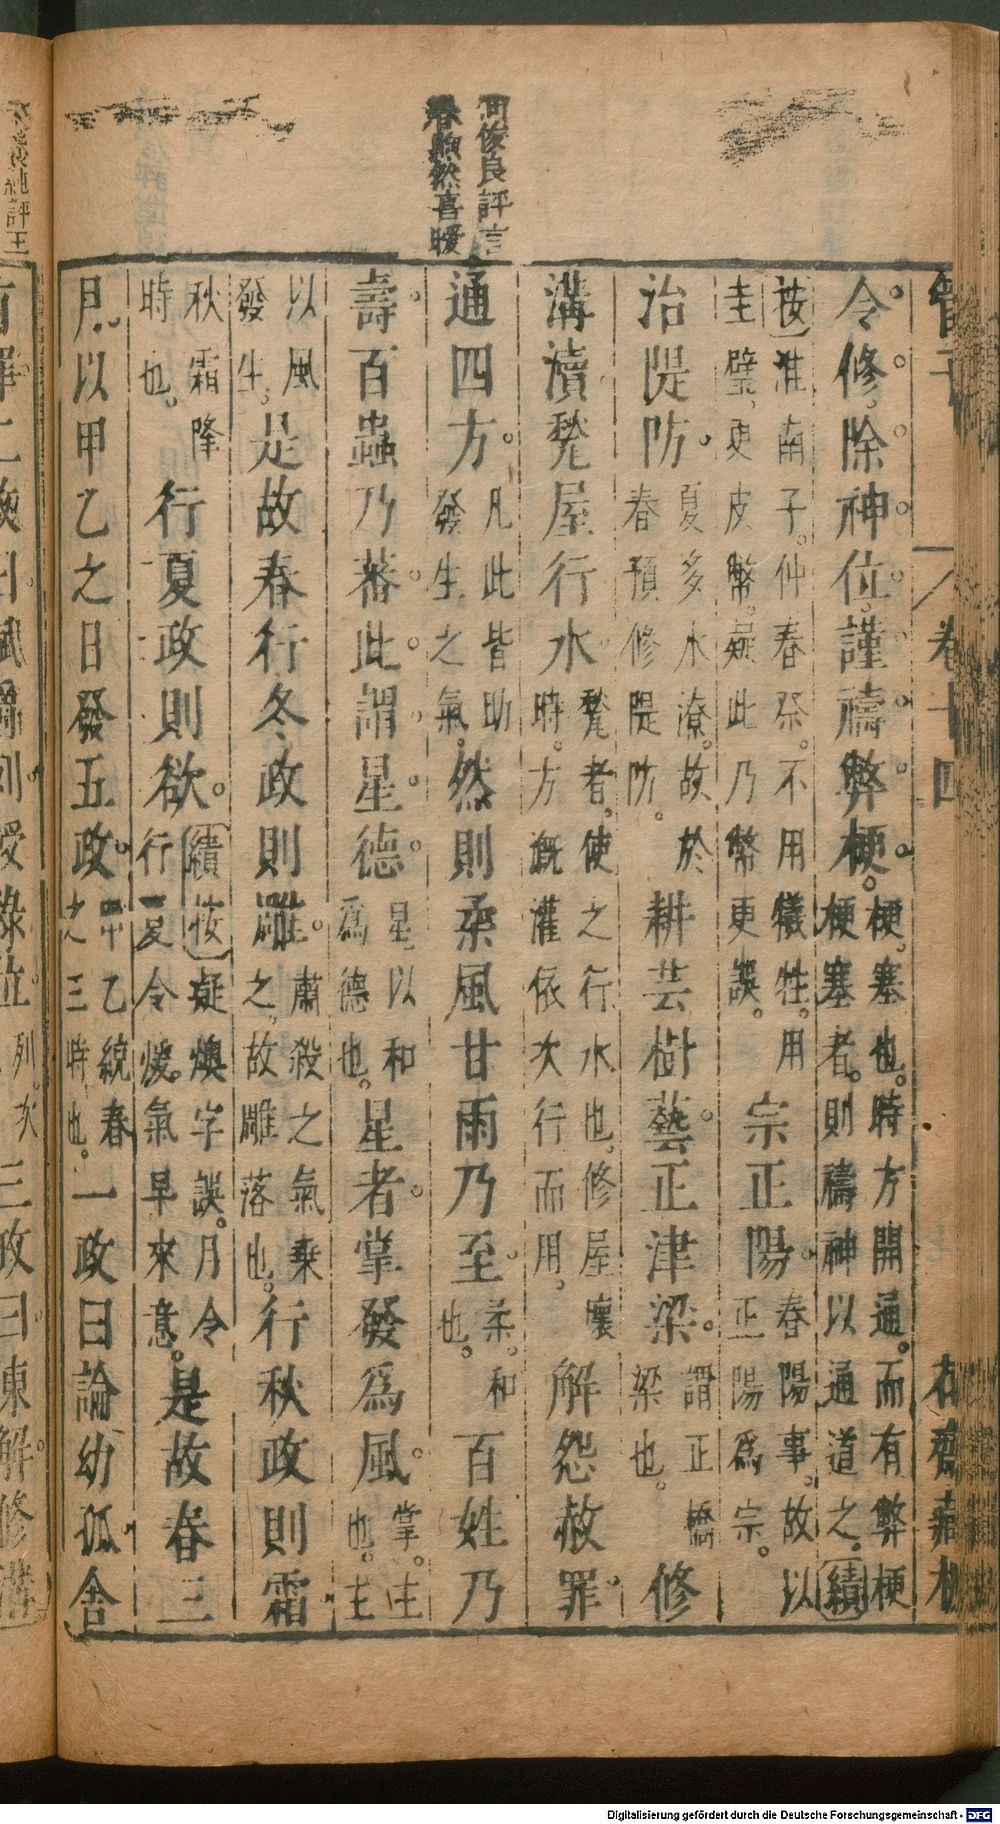 管子　卷十四
何俊良評言
春煦然喜暖
令修除神位謹禱弊梗。梗塞也。時方開通。而有弊梗梗塞者。則禱神以通道之。續
按淮南子。仲春祭。不用犧牲。用圭璧更皮幣。疑此乃幣更誤。宗正陽春陽事。故以正陽為宗。
治隄防夏多水潦。故於春預修隄防。耕芸樹藝正津梁謂正橋梁也。修
溝瀆甃屋行水甃者使之行水也修屋壞時。方溉灌依次行而用。解怨赦罪
通四方凡此皆助發生之氣。然則柔風甘雨乃至柔。和也。百姓乃
壽百蟲乃蕃此謂星德星以和為德也。星者掌發為風掌。主也。主
以風發生。是故春行冬政則雕肅殺之氣乘之故雕落也。行秋政則霜
秋霜降時也。行夏政則欲續按疑燠字誤。月令行夏令煖氣早來意。是故春三
月以甲乙之日發五政甲乙統春之三時也。一政曰論幼孤舍
純評王
有罪二政曰賦爵列授祿位列次三政曰凍解修溝
Digitalisierung gefördert durch die Deutsche Forschungsgemeinschaft - DFG